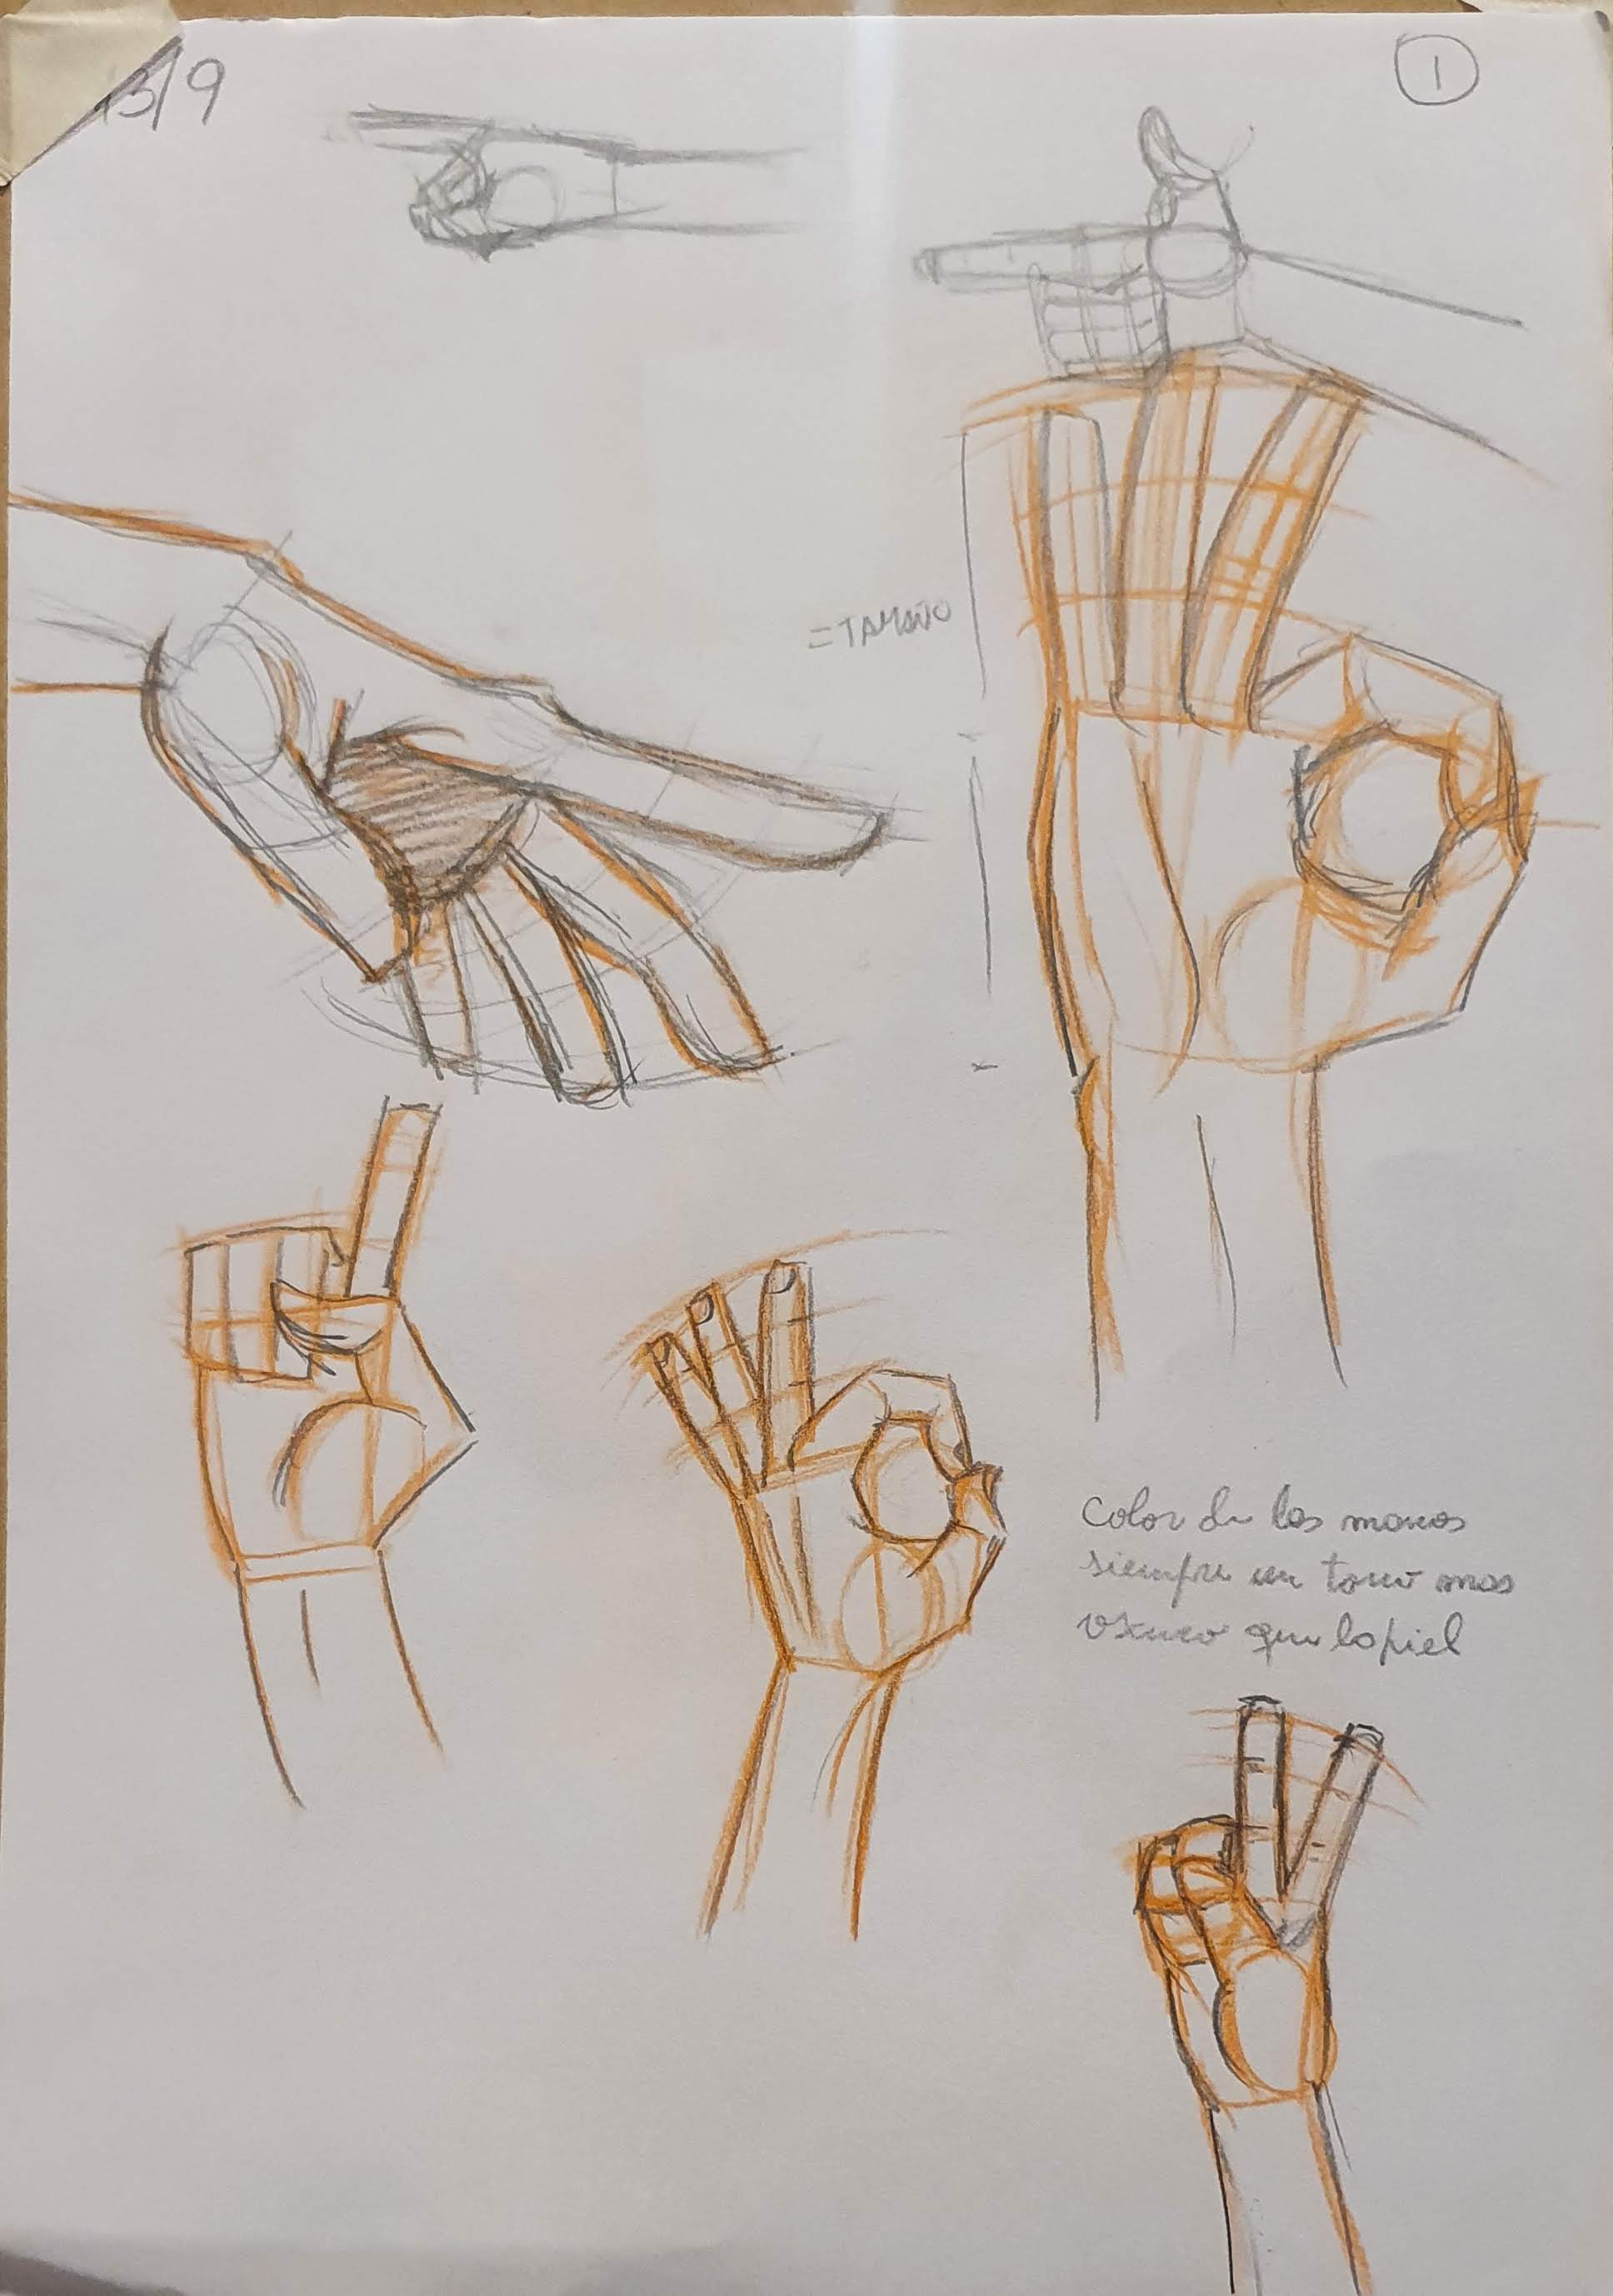 13/9
1
=TAMAÑO
Color de las manos
siempre un tono mas
oscuro que la piel